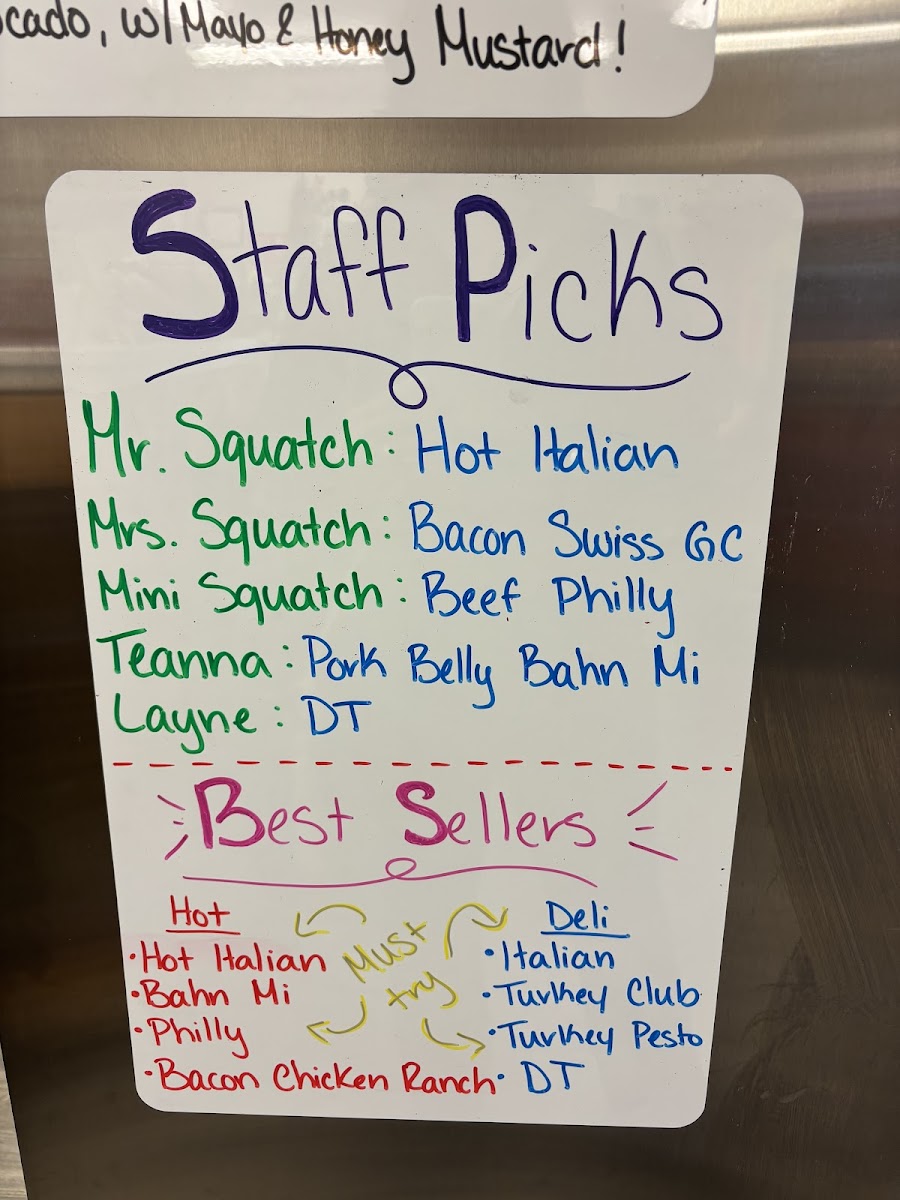 cado, w/ Mayo & Honey Mustard!
Staff Picks
Mr. Squatch: Hot Italian
Mrs. Squatch: Bacon Swiss GC
Mini Squatch: Beef Philly
Teanna: Pork Belly Bahn Mi
Layne: DT
Best Sellers
Hot
•Hot Italian
•Bahn Mi
•Philly
•Bacon Chicken Ranch
Must
try
Deli
•Italian
•Turkey Club
•Turkey Pesto
• DT